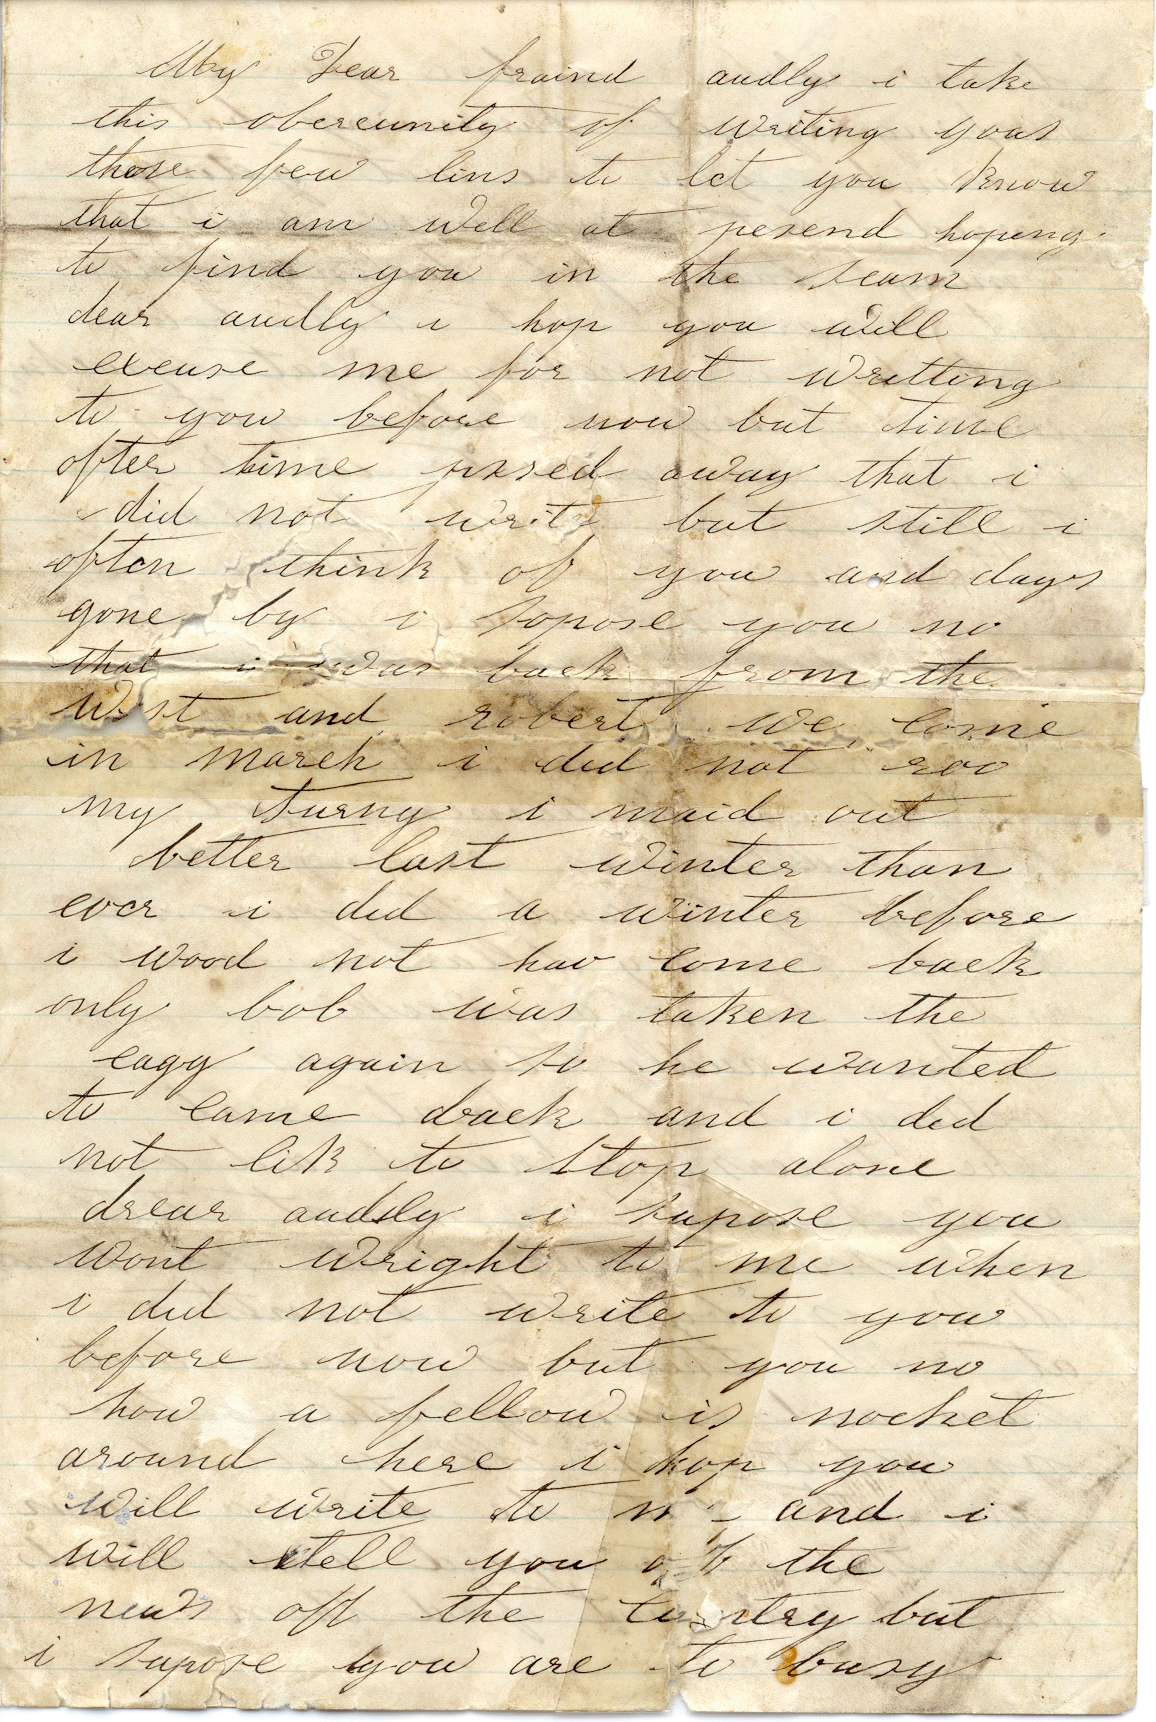 My Dear fraind audly i take
this obercunity of writing yous
those few lins to let you know
that i am well at pesend hopeng
to find you in the seam
dear audly i hop you will
excuse me for not writting
to you before now but time
after time pased away that i
did not write but still i
often think of you and days
gone by i sopose you no
that i was back from the
west and robert we come
in march i did not roo
my turny i maid out
better last winter than
ever i did a winter before
i wood not hav come back
only bob was taken the
eagy again so he wanted
to came back and i did
not lik to stop alone
drear audly i supose you
wont wright to me when
i did not write to you
before now but you no
how a fellow is nocket
around here i hop you
will write to me and i
will tell you off the
news off the cuntry but
i supose you are to busy